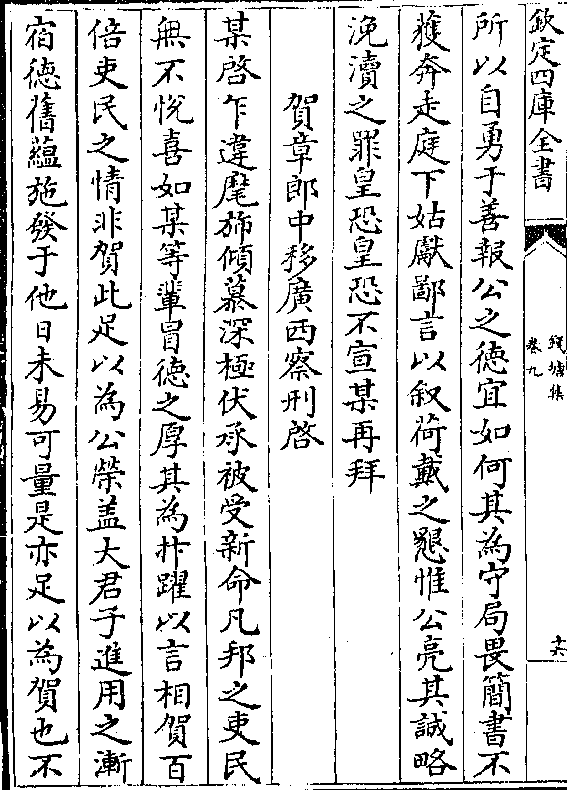 欽定四庫全書
錢塘集
卷九
十六
所以自勇于善報公之徳宜如何其為守局畏簡書不
獲奔走庭下姑獻鄙言以叙荷戴之懇惟公亮其誠略
浼瀆之罪皇恐皇恐不宣某再拜
賀章郎中移廣西察刑啓
某啓乍違麾斾傾慕深極伏承被受新命凡邦之吏民
無不恱喜如某等軰冐徳之厚其為抃躍以言相賀百
倍吏民之情非賀此足以為公榮盖大君子進用之漸
宿徳舊藴施發于他日未易可量是亦足以為賀也不